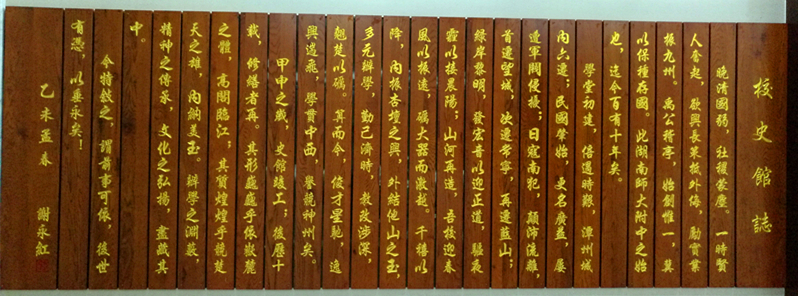 校史館誌
晚清國弱，社稷蒙塵。一時賢
人奮起，歃興長策紓外侮，勵實業
振九州。禹公行亭，始創惟一，冀
以保種存國。此湖南師大附中之始
也，迄今百有十年矣。
學堂初建，倍遭時艱，潭州城
內六遷；民國肇始，更名廣益，屢
遭軍閥侵擾；日寇南犯，顛沛流離，
首遷望城，快遷常寧，再遷藍山；
綠岸黎明，發宏音以迎正道，驅夜
霾以接晨陽；山河再造，吾校迎春
風以振遠，礪大器而激越。千禧以
降，內振杏壇之興，外結他山之玉
多元辦學，勤己濟時，教改涉深，
翹楚以礪。算而今，俊才星馳，逸
興遄飛，學貫中西，譽競神州矣。
甲申之歲，史館竣工；後歷十
載，修繕者再。其形巍巍乎依嶽麓
之體，高閣臨江；其質煌煌乎競楚
天之雄，內納美玉。辦學之淵藪，
精神之傳承，文化之弘揚，盡蕆其
中。
今特銘之，謂舊事可依，後世
有憑，以垂永矣！
乙未孟春　謝永紅